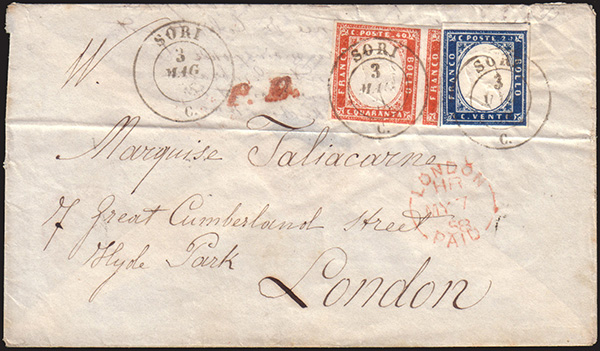 SORI
3
MAG
C.
P. D.
C. POSTE 40
FRANCO
BOLLO
C. QUARANTA
SORI
3
MAG
C.
C. POSTE 20
FRANCO
BOLLO
C. VENTI
SORI
3
C.
Marquise Taliacarne
7 Great Cumberland Street
Hyde Park
London
LONDON
MY 7
58
PAID